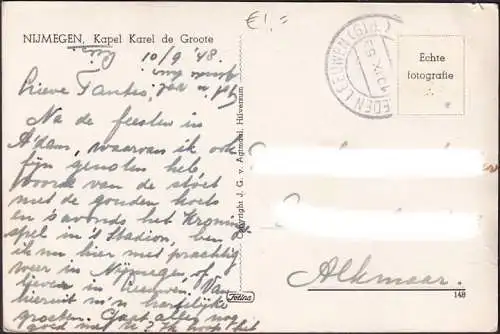 NIJMEGEN, Kapel Karel de Groote
€1,=
10/9 '48.
Lieve Tantes,
Na de feesten in
A'dam, waarvan ik ook
fijn genoten heb
vooral van de stoet
met de gouden koets
en 's avonds het Kronings
spel in 't Stadion, ben
ik nu hier met prachtig
weer in Nijmegen of
liever in Leeuwen. Van
hieruit m'n hartelijke
groeten. Gaat alles nog
goed met u? Ik hoop het
Copyright J. G. v. Agtmaal, Hilversum
Fotina
EDEN LEEUWEN (GLD.)
Echte
fotografie
Alkmaar.
148